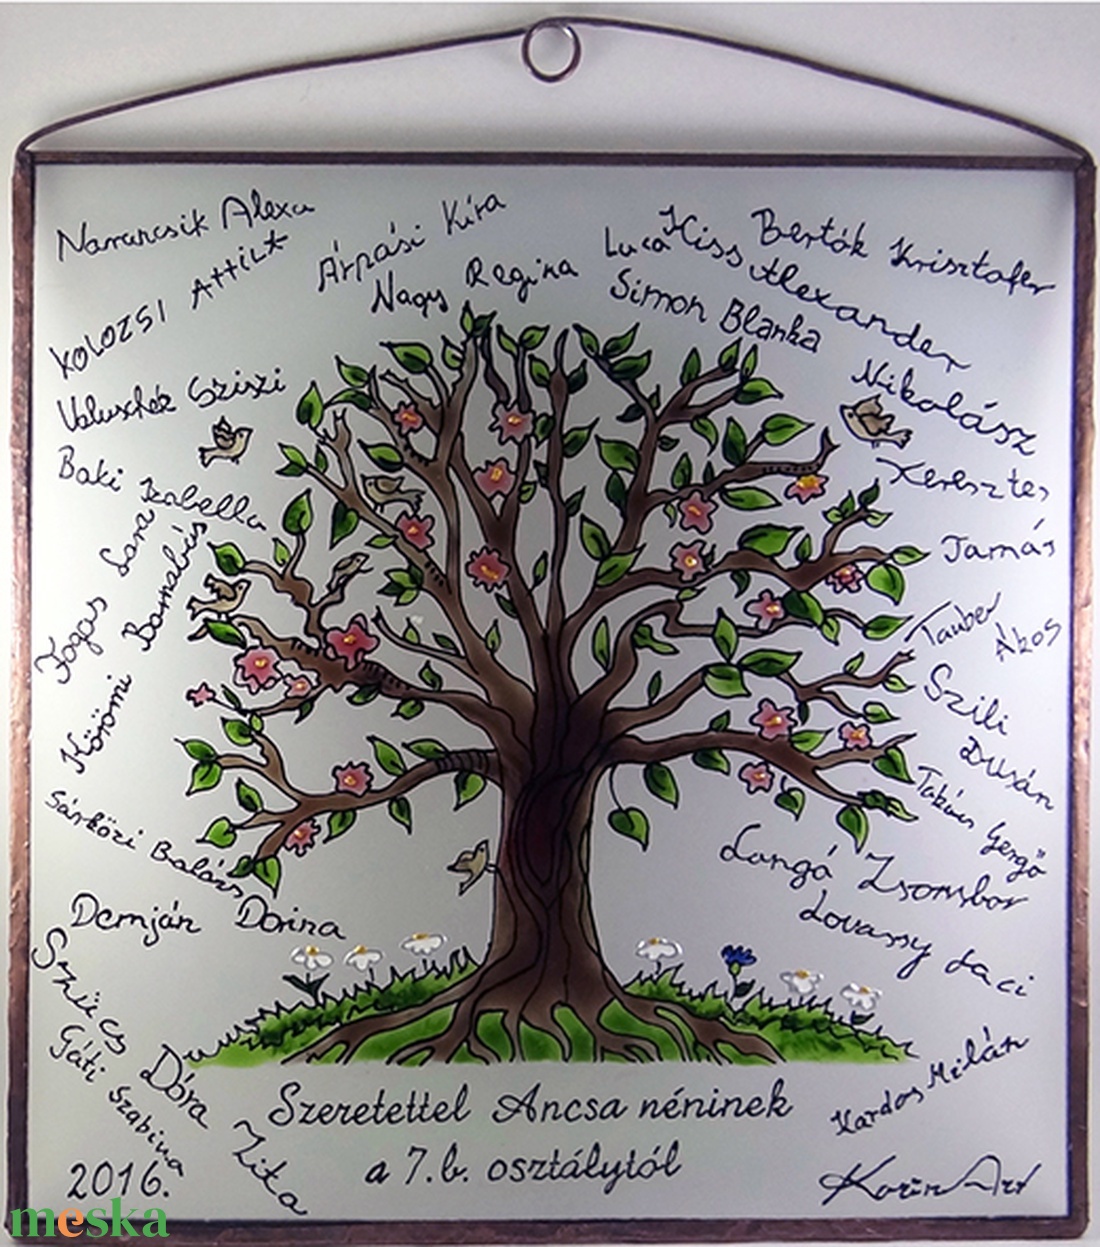 Narancsik Alexa
KOLOZSI ATTILA
Árpási Kíra
Nagy Regina
Luca
Kiss Alexander
Bertók Krisztofer
Simon Blanka
Nikolász
Valuschek Sziszi
Baki Izabella
Keresztes
Tamás
Fogas Sára
Körömi Barnabás
Tauber
Ákos
Szili
Dusán
Sárközi Balázs
Takács Gergő
Langó Zsombor
Demján Dorina
Lovassy Laci
Szücs
Dóra
Gáti Szabina
Zita
Kardos Milán
Szeretettel Ancsa néninek
a 7.b. osztálytól
2016.
Karin Art
meska